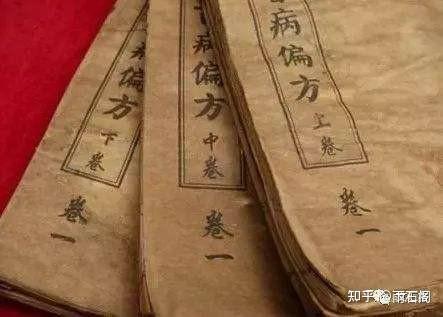 病偏方
上卷
卷一
病偏方
中卷
卷一
病偏方
下卷
卷一
知乎 雨石阁